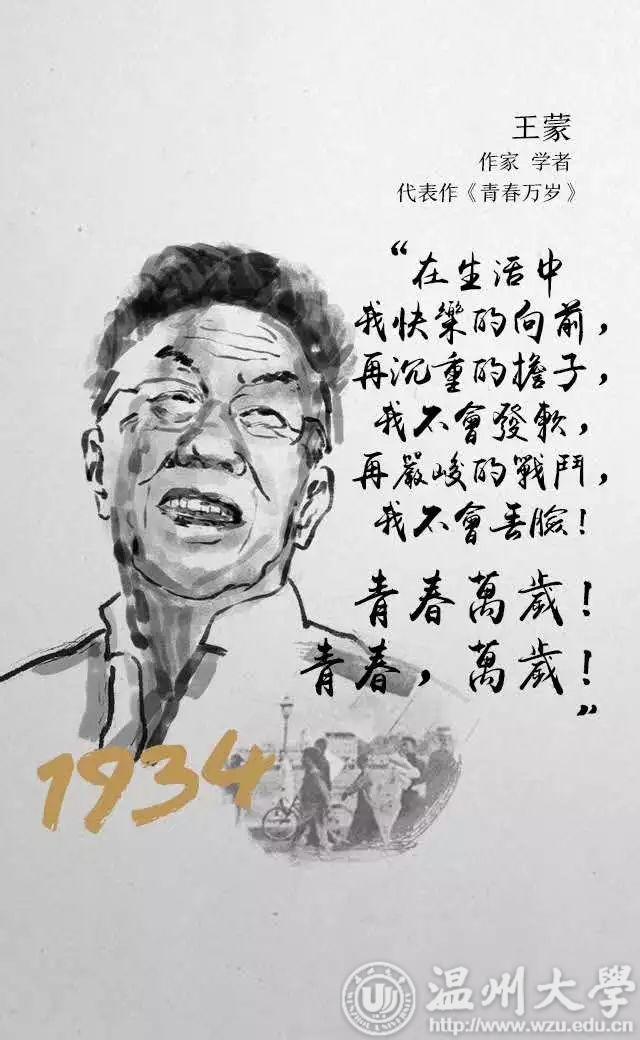 王蒙
作家 学者
代表作《青春万岁》
“在生活中
我快樂的向前,
再沉重的擔子,
我不會發軟,
再嚴峻的戰鬥,
我不會丟臉!
青春萬歲!
青春, 萬歲!
”
1934
温州大學
http://www.wzu.edu.cn